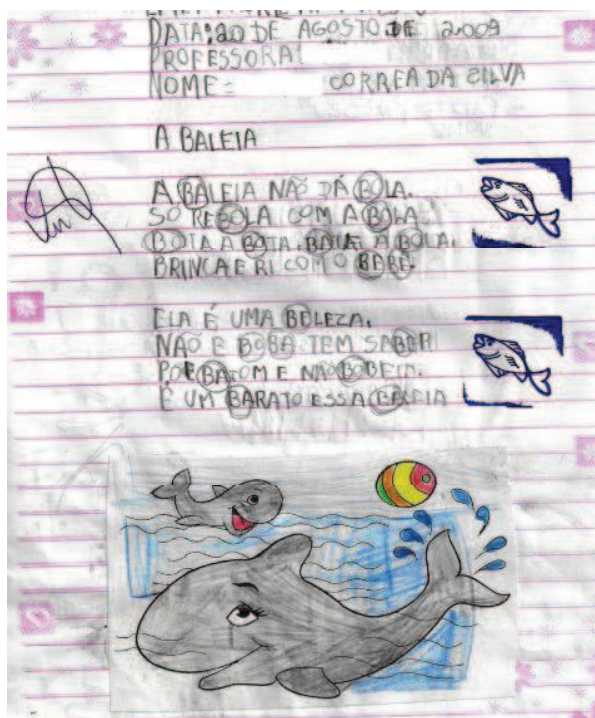 DATA: 20 DE AGOSTO DE 2009
PROFESSORA:
NOME: CORREA DA SILVA
A BALEIA
A BALEIA NÃO DÁ BOLA.
SO REBOLA COM A BOLA.
BOTA A BOTA. BATE A BOLA.
BRINCA E RI COM O BABE.
ELA É UMA BELEZA.
NÃO E BOBA TEM SABER
POE BATOM E NÃO BOBEIA.
É UM BARATO ESSA BALEIA